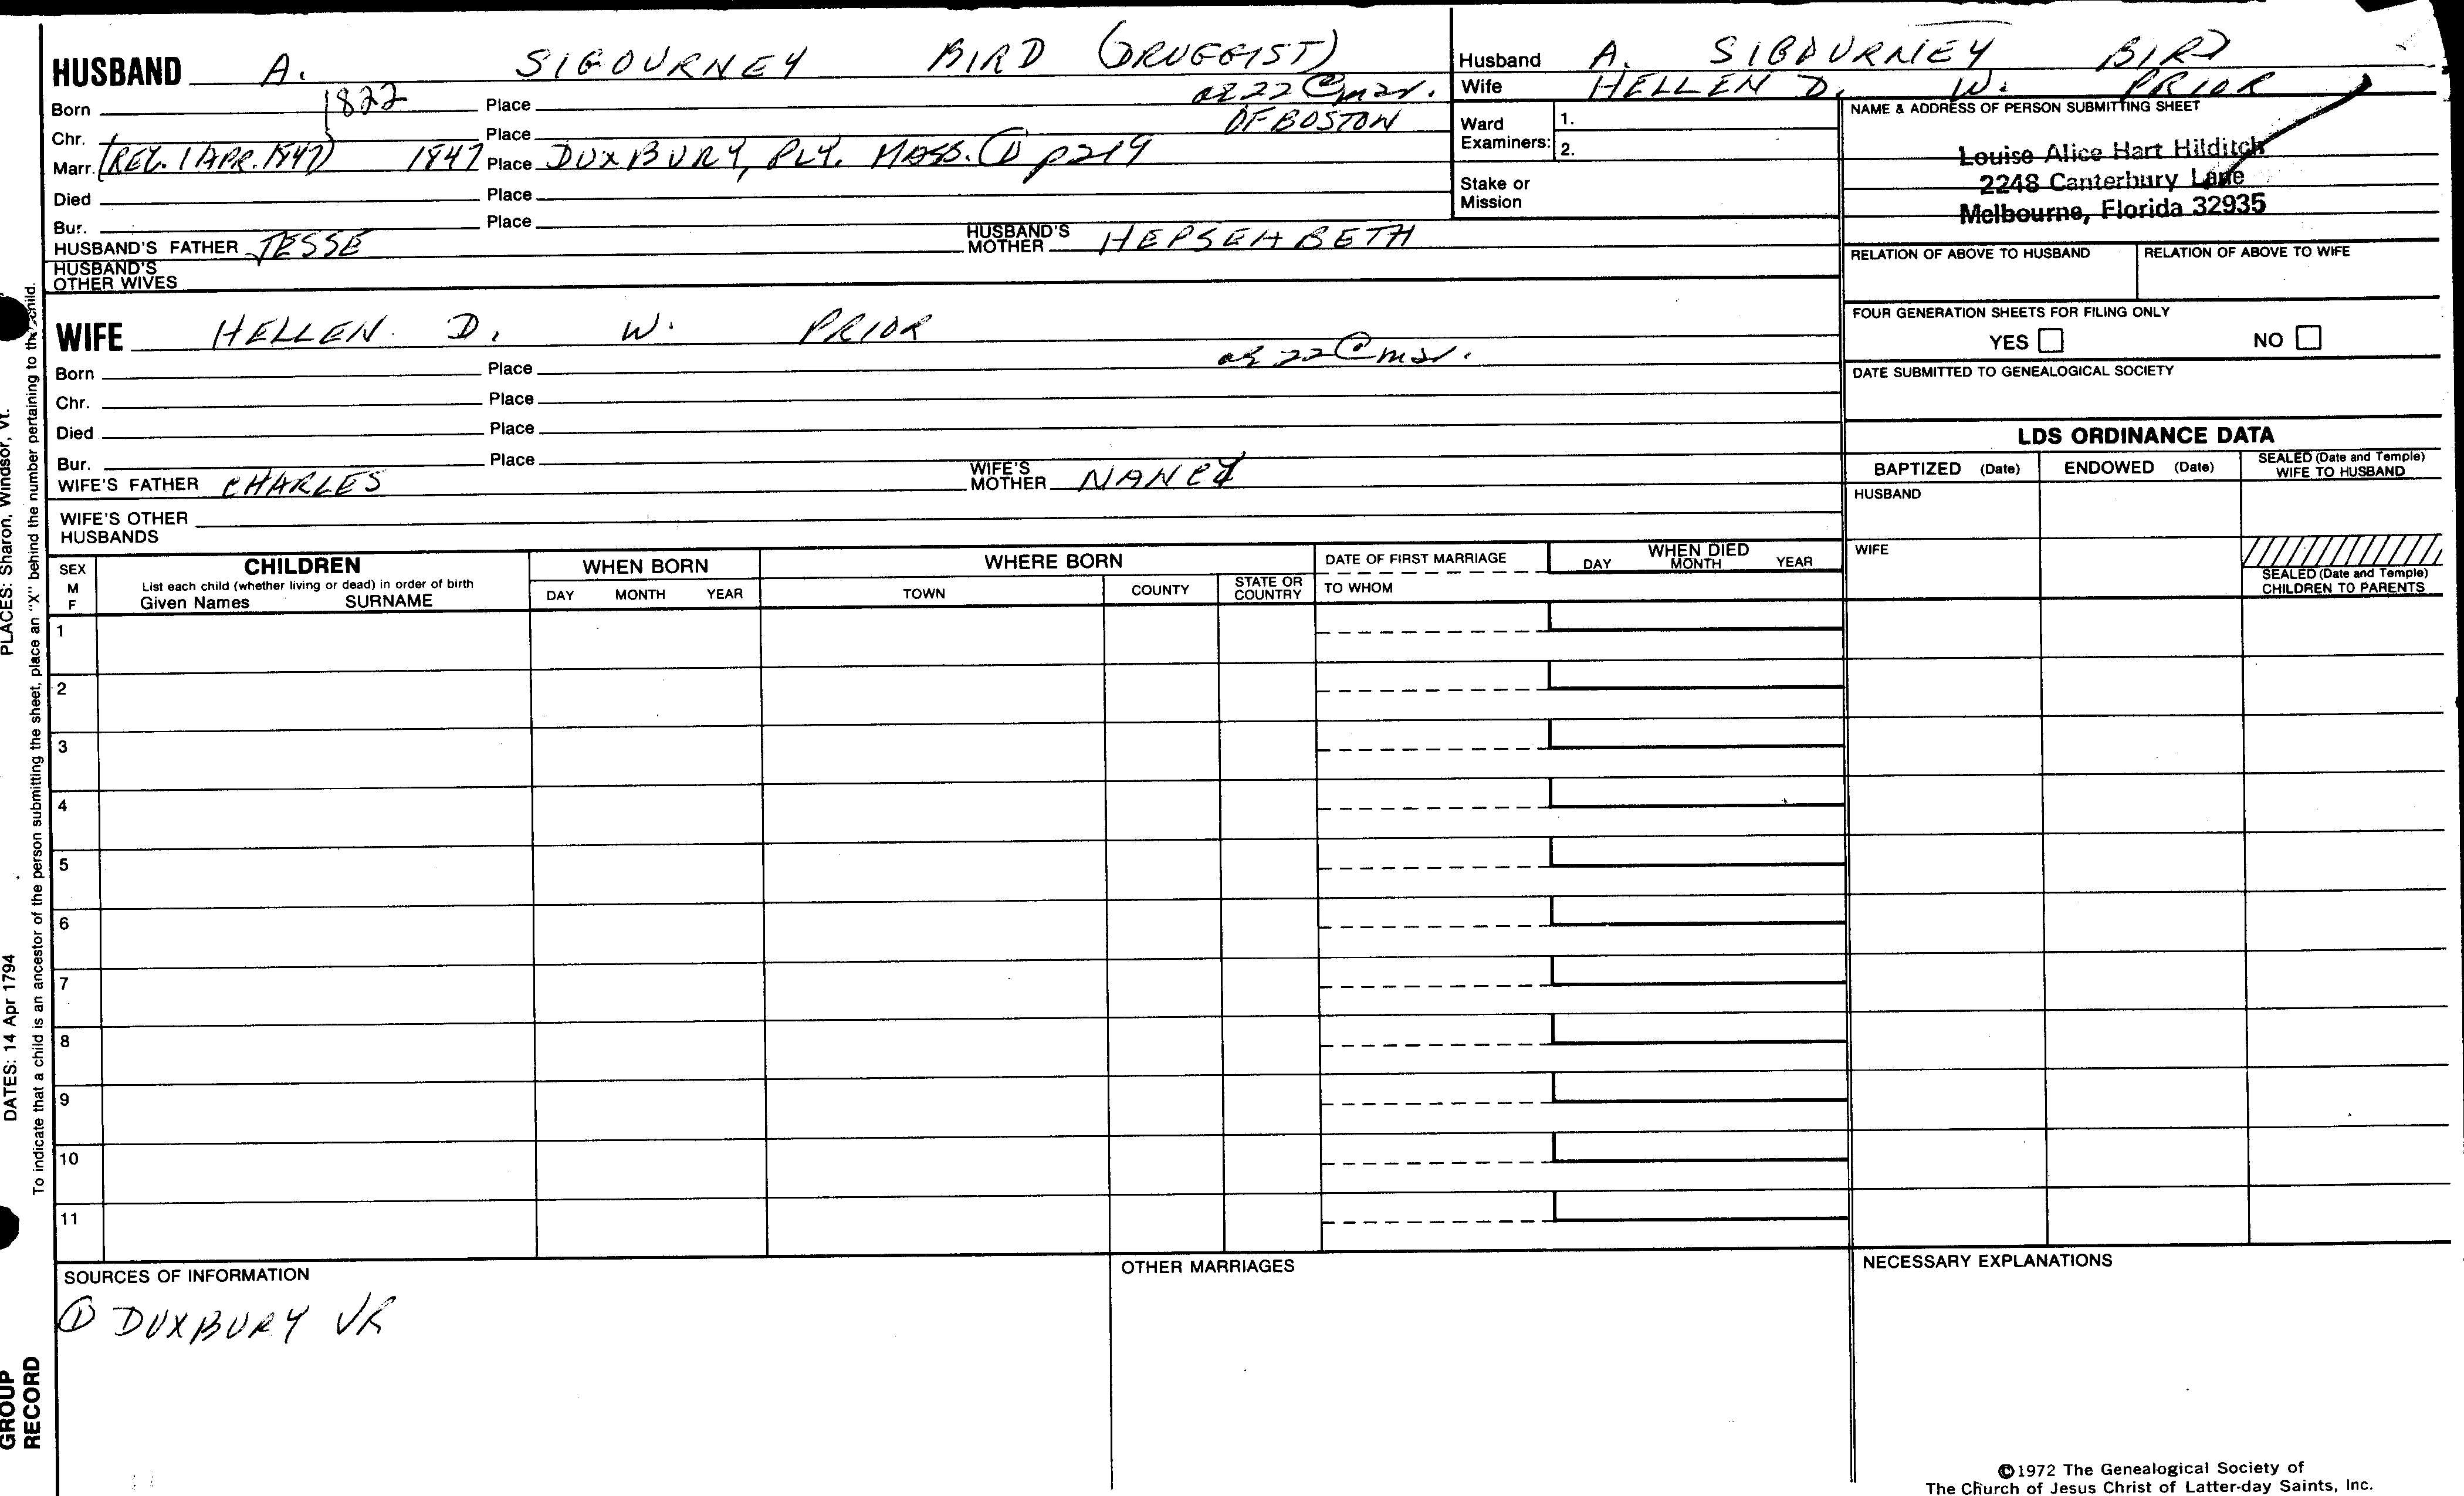 HUSBAND A. SIGOURNEY BIRD (DRUGGIST)
Born 1822 Place ae 22 @ mar.
Chr. Place OF BOSTON
Marr. (REC. 1 APR. 1847) 1847 Place DUXBURY, PLY. MASS. ① p219
Died Place
Bur. Place
HUSBAND'S FATHER JESSE HUSBAND'S MOTHER HEPSEHBETH
HUSBAND'S OTHER WIVES
Husband A. SIGOURNEY BIRD
Wife HELLEN D. W. PRIOR
Ward Examiners: 1.
2.
Stake or Mission
NAME & ADDRESS OF PERSON SUBMITTING SHEET
Louise Alice Hart Hilditch
2248 Canterbury Lane
Melbourne, Florida 32935
RELATION OF ABOVE TO HUSBAND RELATION OF ABOVE TO WIFE
FOUR GENERATION SHEETS FOR FILING ONLY
YES NO
DATE SUBMITTED TO GENEALOGICAL SOCIETY
WIFE HELLEN D. W. PRIOR
Born Place ae 22 @ mar.
Chr. Place
Died Place
Bur. Place
WIFE'S FATHER CHARLES WIFE'S MOTHER NANCY
WIFE'S OTHER HUSBANDS
LDS ORDINANCE DATA
BAPTIZED (Date) ENDOWED (Date) SEALED (Date and Temple) WIFE TO HUSBAND
HUSBAND
WIFE
SEALED (Date and Temple) CHILDREN TO PARENTS
SEX M F
CHILDREN
List each child (whether living or dead) in order of birth
Given Names SURNAME
WHEN BORN
DAY MONTH YEAR
WHERE BORN
TOWN COUNTY STATE OR COUNTRY
DATE OF FIRST MARRIAGE
TO WHOM
WHEN DIED
DAY MONTH YEAR
1
2
3
4
5
6
7
8
9
10
11
SOURCES OF INFORMATION
① DUXBURY VR
OTHER MARRIAGES
NECESSARY EXPLANATIONS
©1972 The Genealogical Society of
The Church of Jesus Christ of Latter-day Saints, Inc.
PLACES: Sharon, Windsor, Vt.
DATES: 14 Apr 1794
To indicate that a child is an ancestor of the person submitting the sheet, place an "X" behind the number pertaining to the child.
GROUP
RECORD